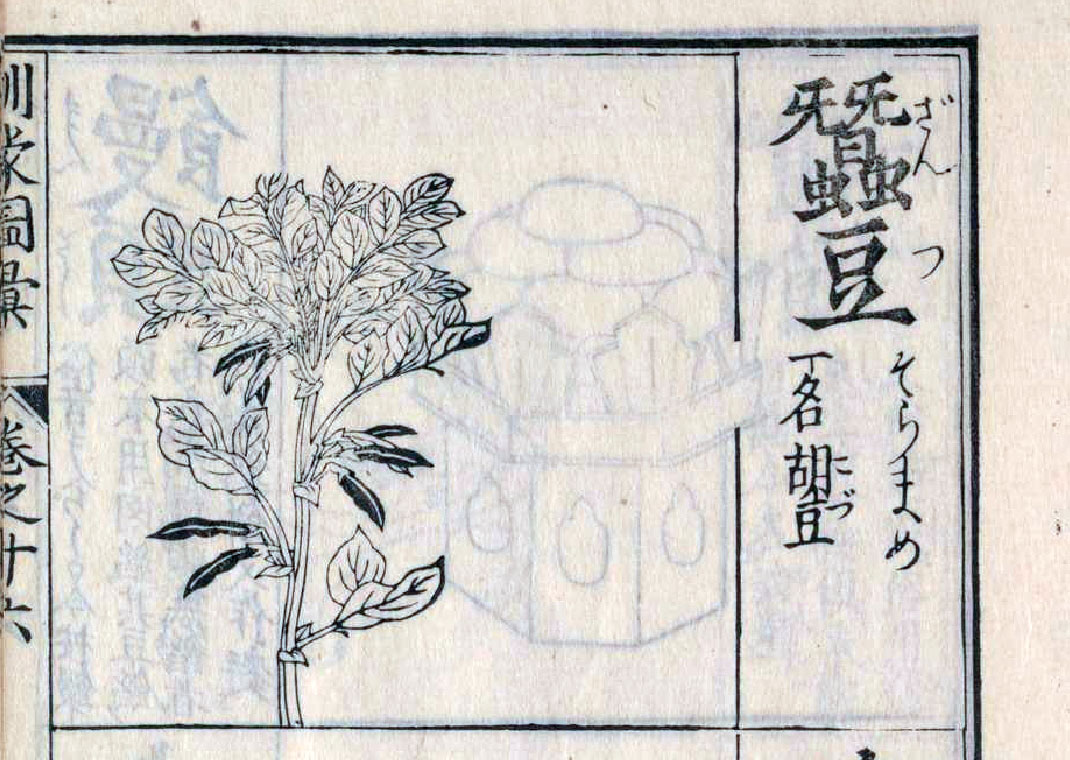 蠶豆
ざんつ
そらまめ
一名胡豆
こづ
訓蒙圖彙
卷之十六